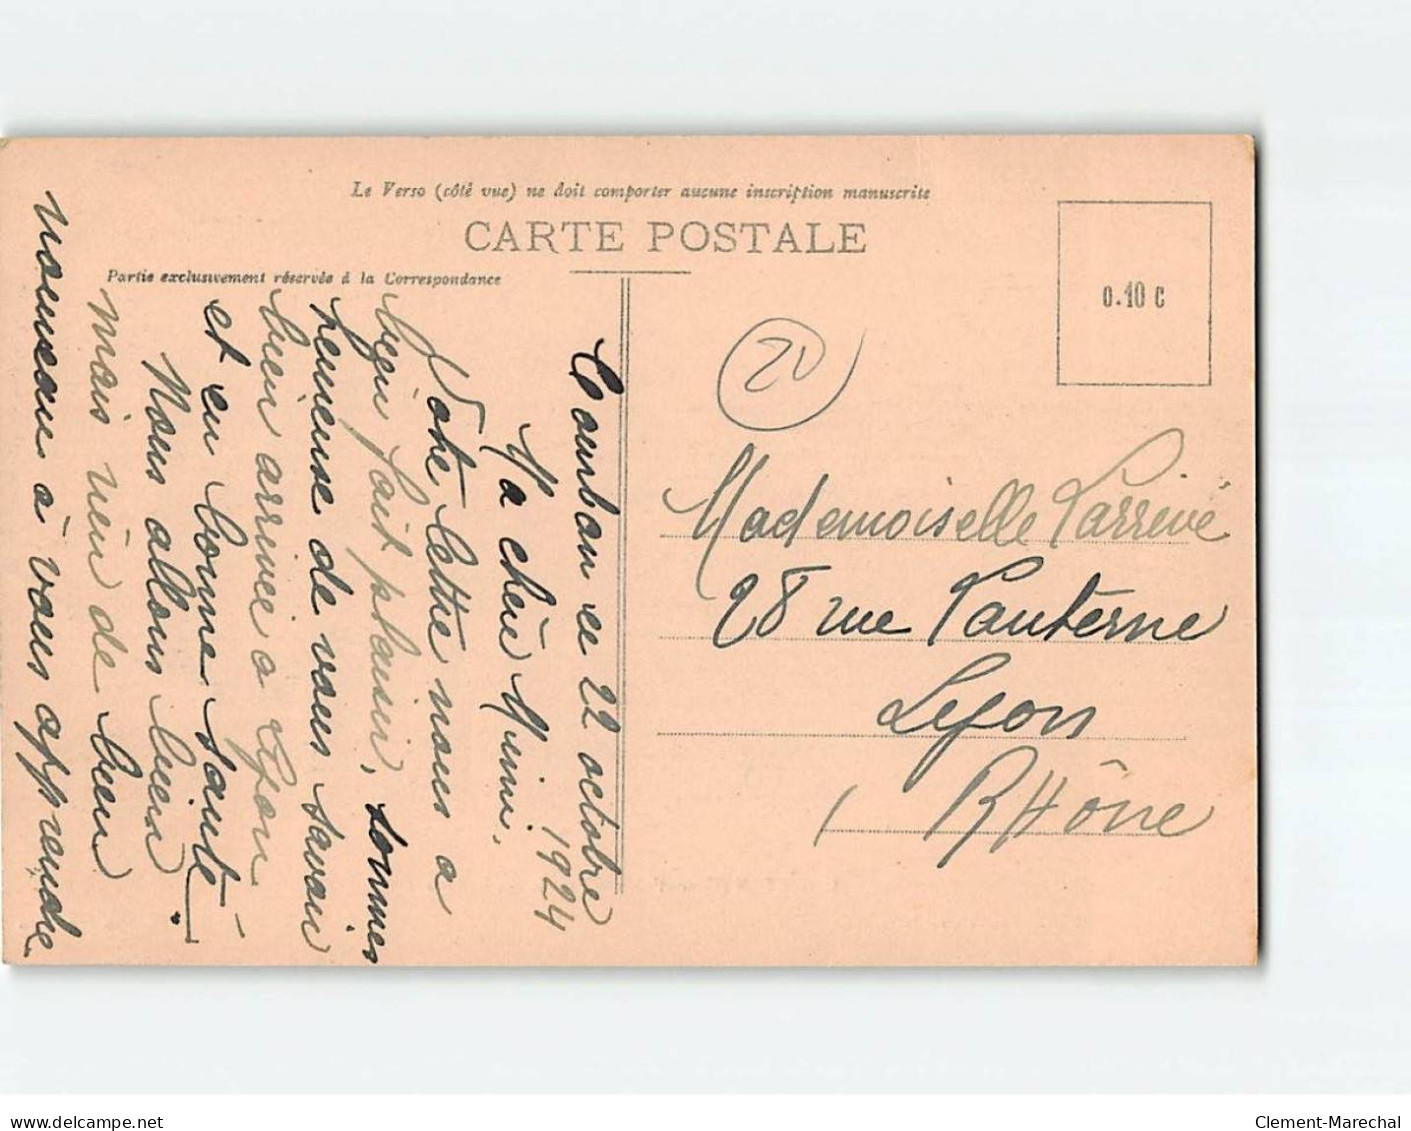 Le Verso (côté vue) ne doit comporter aucune inscription manuscrite
CARTE POSTALE
Partie exclusivement réservée à la Correspondance
0.10 c
20
Courban ce 22 octobre
1924
Ma chère Mimi,
Votre lettre nous a
bien fait plaisir, sommes
heureuse de vous savoir
bien arrivée a Lyon
et en bonne santé
Nous allons bien
mais rien de bien
nouveau à vous apprendre
Mademoiselle Larrivé
28 rue Lanterne
Lyon
Rhône
delcampe.net
Clement-Marechal